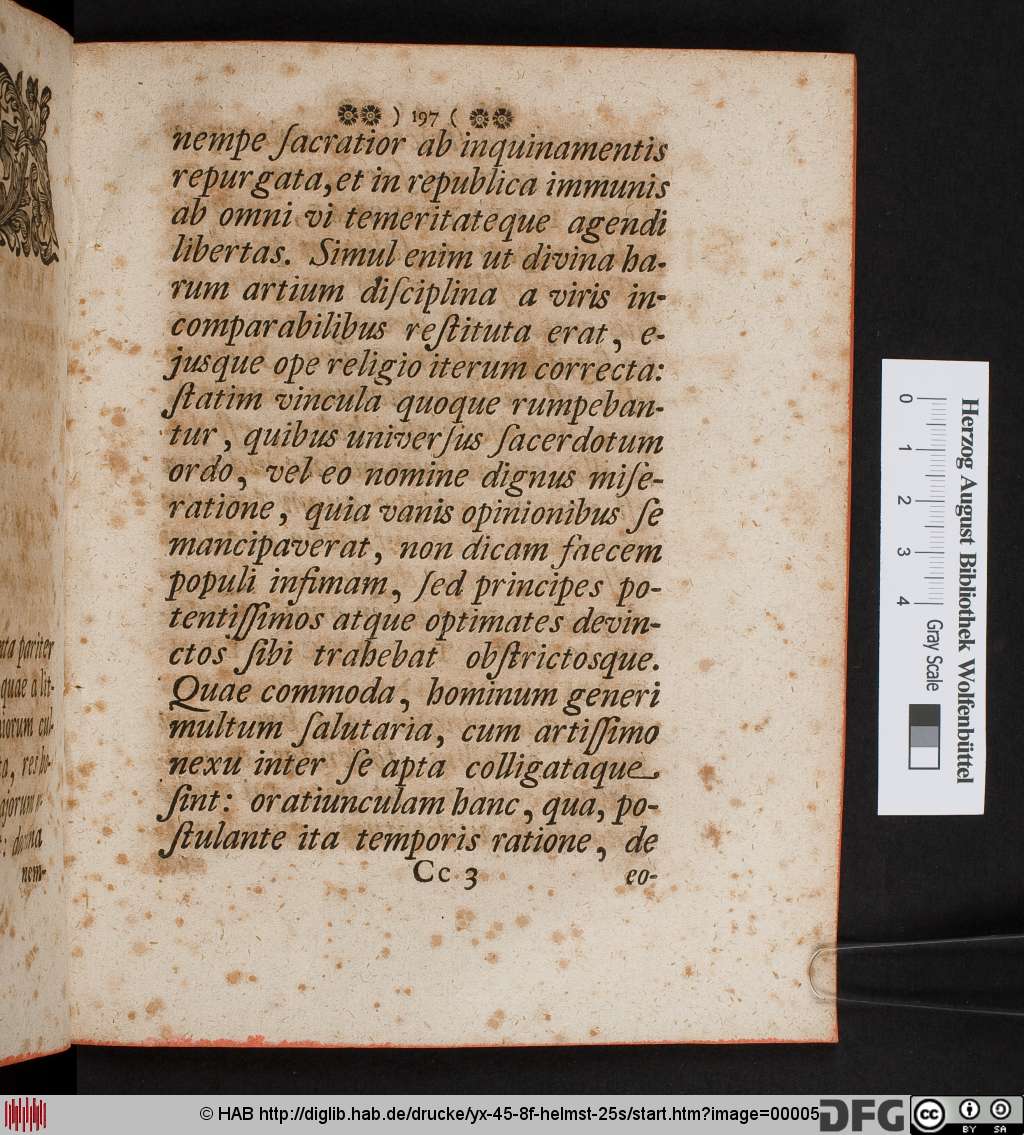 ) 197 (
nempe ſacratior ab inquinamentis
repurgata, et in republica immunis
ab omni vi temeritateque agendi
libertas. Simul enim ut divina ha-
rum artium diſciplina a viris in-
comparabilibus reſtituta erat, e-
jusque ope religio iterum correcta:
ſtatim vincula quoque rumpeban-
tur, quibus univerſus ſacerdotum
ordo, vel eo nomine dignus miſe-
ratione, quia vanis opinionibus ſe
mancipaverat, non dicam faecem
populi infimam, ſed principes po-
tentiſſimos atque optimates devin-
ctos ſibi trahebat obſtrictosque.
Quae commoda, hominum generi
multum ſalutaria, cum artiſſimo
nexu inter ſe apta colligataque
ſint: oratiunculam hanc, qua, po-
ſtulante ita temporis ratione, de
Cc 3
eo-
pariter
quae a lit-
cul-
nem-
Herzog August Bibliothek Wolfenbüttel
0 1 2 3 4
Gray Scale
© HAB http://diglib.hab.de/drucke/yx-45-8f-helmst-25s/start.htm?image=00005
DFG
cc
BY SA